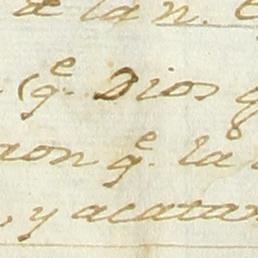 de la n.
(q.e Dios
aon q.e la
y acata